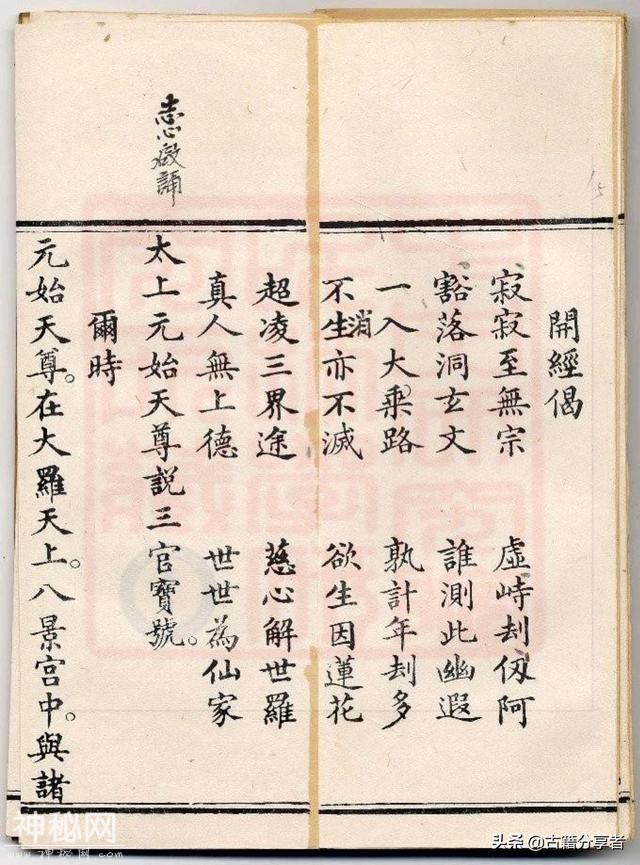 開經偈
寂寂至無宗 虛峙刦仞阿
豁落洞玄文 誰測此幽遐
一入大乘路 孰計年刦多
不生亦不滅 欲生因蓮花
消
超凌三界途 慈心解世羅
真人無上德 世世為仙家
志心誦
太上元始天尊説三官寶號。
爾時
元始天尊。在大羅天上。八景宮中。與諸
神秘网
头条 @古籍分享者